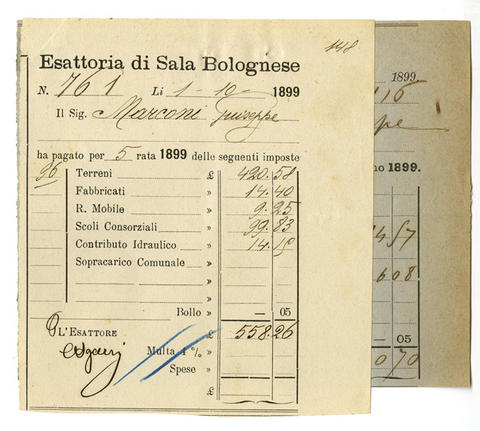 148
Esattoria di Sala Bolognese
N. 761 Li 1-10- 1899
Il Sig. Marconi Giuseppe
ha pagato per 5 rata 1899 delle seguenti imposte
96 Terreni £ 420.58
Fabbricati » 14.40
R. Mobile » 9.25
Scoli Consorziali » 99.83
Contributo Idraulico » 14.15
Sopracarico Comunale »
»
»
Bollo » — 05
L'ESATTORE £ 558.26
Multa 4 % »
Spese »
£
1899
116
no 1899.
57
608
05
070